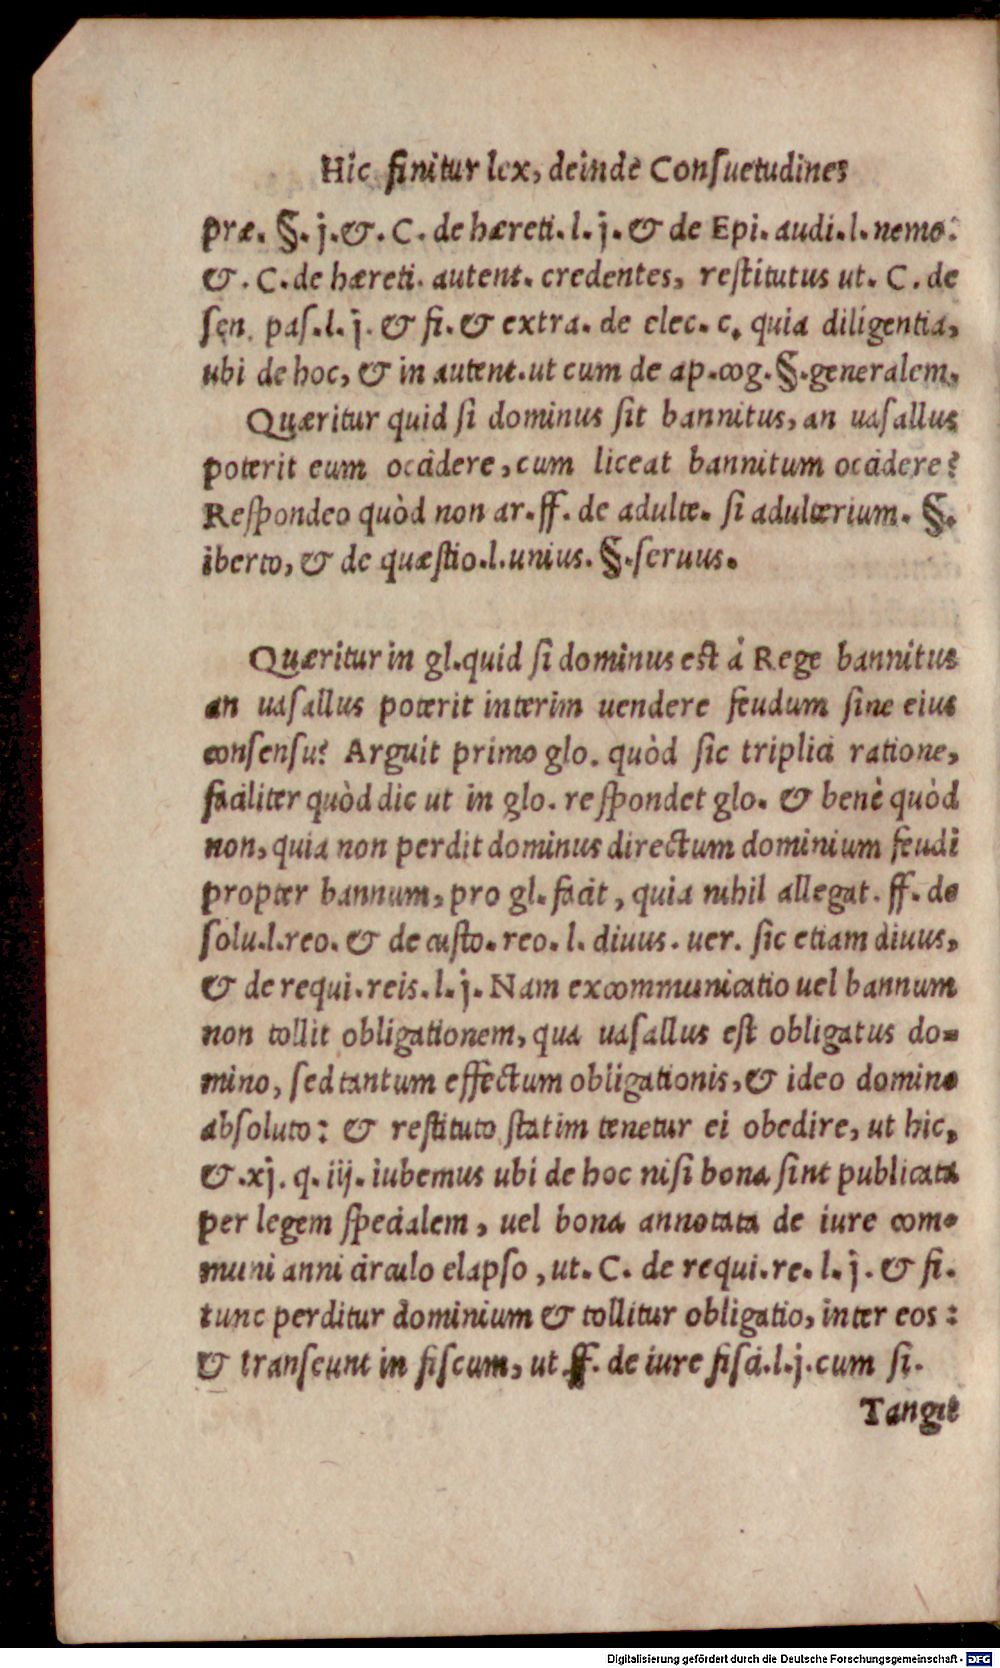 Hic finitur lex, deinde Consuetudines
præ. §. j. &. C. de hæreti. l. j. & de Epi. audi. l. nemo.
&. C. de hæreti. autent. credentes, restitutus ut. C. de
sen. pas. l. j. & fi. & extra. de elec. c. quia diligentia,
ubi de hoc, & in autent. ut cum de ap. cog. §. generalem.
Quæritur quid si dominus sit bannitus, an uasallus
poterit eum occidere, cum liceat bannitum occidere?
Respondeo quòd non ar. ff. de adulte. si adulterium. §.
iberto, & de quæstio. l. unius. §. seruus.
Quæritur in gl. quid si dominus est à Rege bannitus
an uasallus poterit interim uendere feudum sine eius
consensu? Arguit primo glo. quòd sic triplici ratione,
faciliter quòd dic ut in glo. respondet glo. & benè quòd
non, quia non perdit dominus directum dominium feudi
propter bannum, pro gl. facit, quia nihil allegat. ff. de
solu. l. reo. & de custo. reo. l. diuus. uer. sic etiam diuus,
& de requi. reis. l. j. Nam excommunicatio uel bannum
non tollit obligationem, qua uasallus est obligatus do=
mino, sed tantum effectum obligationis, & ideo domino
absoluto: & restituto statim tenetur ei obedire, ut hic,
&. xj. q. iij. iubemus ubi de hoc nisi bona sint publicata
per legem specialem, uel bona annotata de iure com=
muni anni circulo elapso, ut. C. de requi. re. l. j. & fi.
tunc perditur dominium & tollitur obligatio, inter eos:
& transeunt in fiscum, ut ff. de iure fisci. l. j. cum si.
Tangit
Digitalisierung gefördert durch die Deutsche Forschungsgemeinschaft - DFG